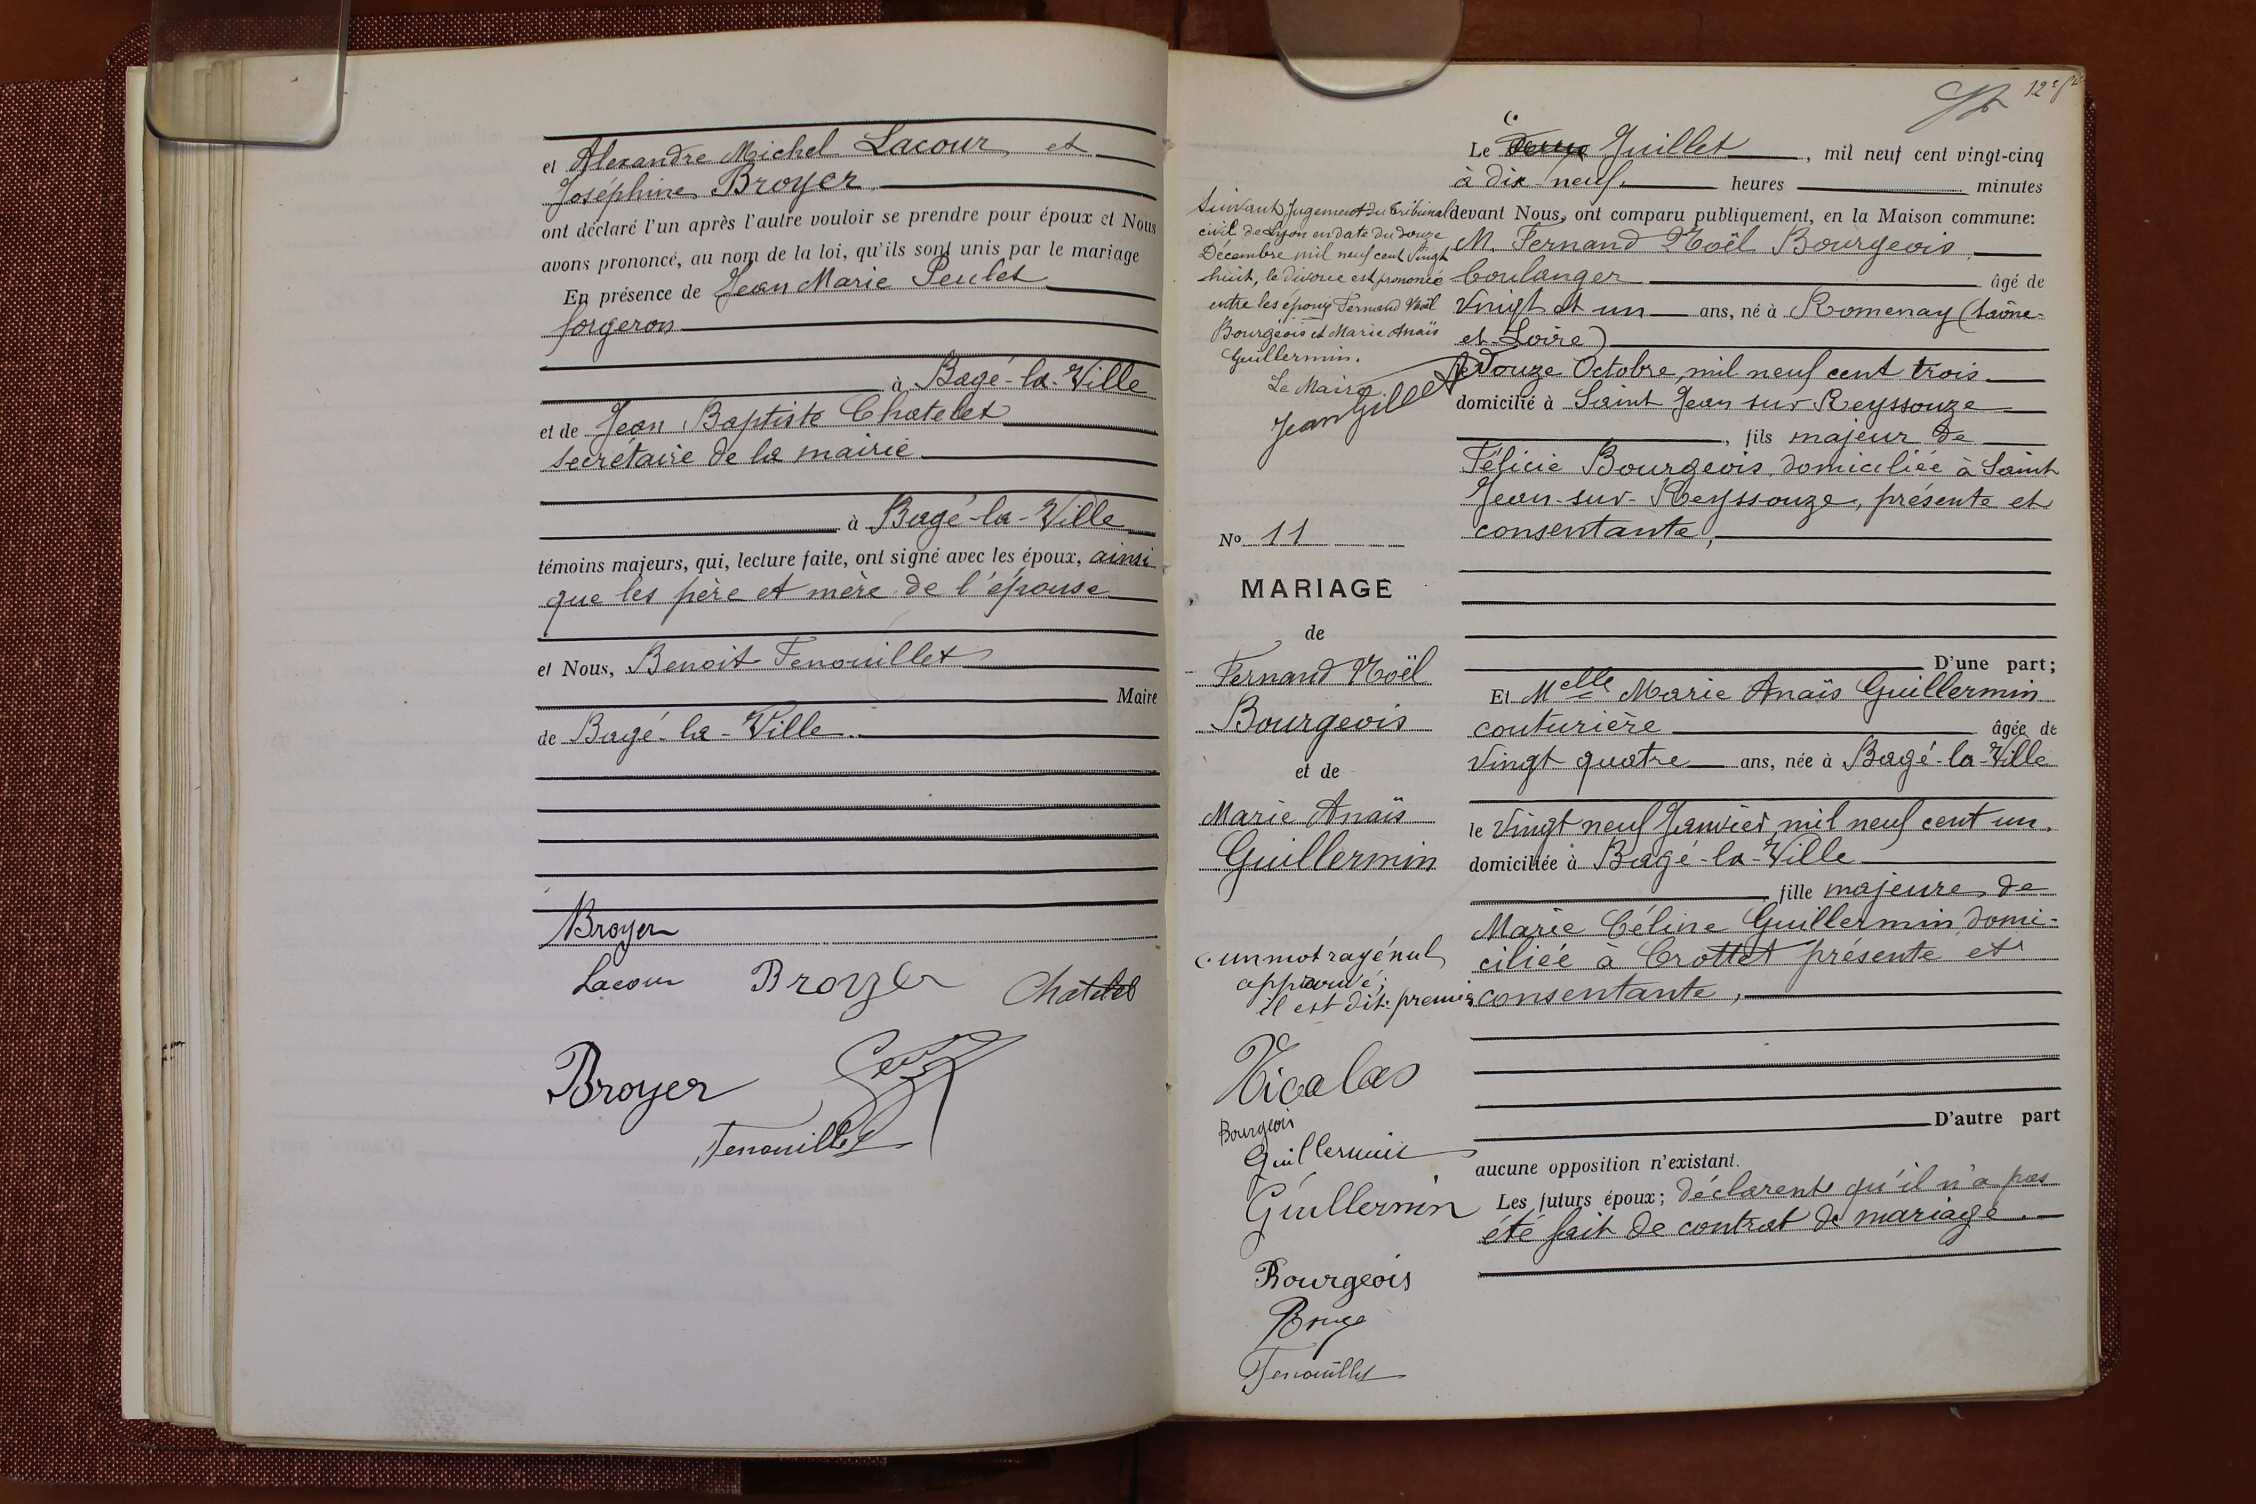 et Alexandre Michel Lacour et
Joséphine Broyer
ont déclaré l'un après l'autre vouloir se prendre pour époux et Nous
avons prononcé, au nom de la loi, qu'ils sont unis par le mariage
En présence de Jean Marie Peulet
forgeron
à Bagé-la-Ville
et de Jean Baptiste Chatelet
secrétaire de la mairie
à Bagé-la-Ville
témoins majeurs, qui, lecture faite, ont signé avec les époux, ainsi
que les père et mère de l'épouse
et Nous, Benoit Fenouillet
Maire
de Bagé-la-Ville.
Broyer
Lacour Broyer Châtelet
Broyer
Fenouillet
12e
Le deux Juillet, mil neuf cent vingt-cinq
à dix neuf heures minutes
devant Nous, ont comparu publiquement, en la Maison commune:
M. Fernand Noël Bourgeois,
boulanger âgé de
vingt et un ans, né à Romenay (Saône-
et-Loire)
le douze Octobre, mil neuf cent trois
domicilié à Saint Jean sur Reyssouze
, fils majeur de
Félicie Bourgeois domiciliée à Saint
Jean-sur-Reyssouze, présente et
consentante,
D'une part;
Et Melle Marie Anaïs Guillermin
couturière âgée de
vingt quatre ans, née à Bagé-la-Ville
le vingt neuf Janvier mil neuf cent un.
domiciliée à Bagé-la-Ville
fille majeure de
Marie Céline Guillermin domi-
ciliée à Crottet présente et
consentante,
D'autre part
aucune opposition n'existant.
Les futurs époux; déclarent qu'il n'a pas
été fait de contrat de mariage.
Suivant Jugement du Tribunal
civil de Lyon en date du douze
Décembre mil neuf cent vingt
huit, le divorce est prononcé
entre les époux Fernand Noël
Bourgeois et Marie Anaïs
Guillermin.
Le Maire
Jean Gillet
No 11
MARIAGE
de
Fernand Noël
Bourgeois
et de
Marie Anaïs
Guillermin
un mot rayé nul
approuvé;
il est dit: premier
Nicolas
Bourgeois
Guillermin
Guillermin
Bourgeois
Fenouillet